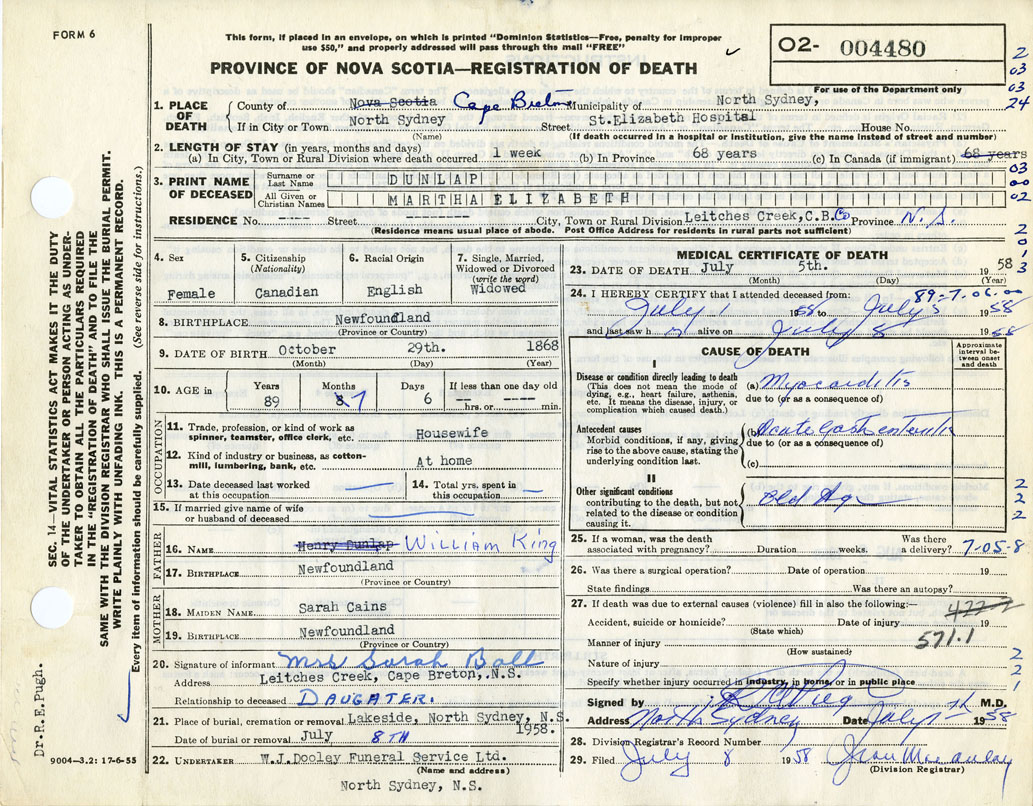 FORM 6
This form, if placed in an envelope, on which is printed "Dominion Statistics—Free, penalty for improper
use $50," and properly addressed will pass through the mail "FREE"
O2- 004480
For use of the Department only
PROVINCE OF NOVA SCOTIA—REGISTRATION OF DEATH
2
03
03
24
1. PLACE OF DEATH
County of Nova Scotia Cape Breton Municipality of North Sydney,
If in City or Town North Sydney Street St.Elizabeth Hospital House No.
(Name) (If death occurred in a hospital or institution, give the name instead of street and number)
2. LENGTH OF STAY (in years, months and days)
(a) In City, Town or Rural Division where death occurred 1 week (b) In Province 68 years (c) In Canada (if immigrant) 68 years
03
00
02
3. PRINT NAME OF DECEASED
Surname or Last Name DUNLAP
All Given or Christian Names MARTHA ELIZABETH
RESIDENCE No. ---- Street -------- City, Town or Rural Division Leitches Creek,C.B.Co Province N.S.
(Residence means usual place of abode. Post Office Address for residents in rural parts not sufficient)
2
0
1
3
4. Sex
Female
5. Citizenship
(Nationality)
Canadian
6. Racial Origin
English
7. Single, Married,
Widowed or Divorced
(write the word)
Widowed
8. BIRTHPLACE Newfoundland
(Province or Country)
9. DATE OF BIRTH October 29th. 1868
(Month) (Day) (Year)
10. AGE in
Years Months Days If less than one day old
89 8 7 6 hrs. or min.
OCCUPATION
11. Trade, profession, or kind of work as
spinner, teamster, office clerk, etc. Housewife
12. Kind of industry or business, as cotton-
mill, lumbering, bank, etc. At home
13. Date deceased last worked
at this occupation
14. Total yrs. spent in
this occupation
15. If married give name of wife
or husband of deceased
FATHER
16. NAME Henry Dunlap William King
17. BIRTHPLACE Newfoundland
(Province or Country)
MOTHER
18. MAIDEN NAME Sarah Cains
19. BIRTHPLACE Newfoundland
(Province or Country)
20. Signature of informant Mrs Sarah Ball
Address Leitches Creek, Cape Breton,.N.S.
Relationship to deceased DAUGATER.
21. Place of burial, cremation or removal Lakeside, North Sydney, N.S.
Date of burial or removal July 8TH 1958.
22. UNDERTAKER W.J.Dooley Funeral Service Ltd.
(Name and address)
North Sydney, N.S.
MEDICAL CERTIFICATE OF DEATH
23. DATE OF DEATH July 5th. 1958
(Month) (Day) (Year)
24. I HEREBY CERTIFY that I attended deceased from: 89-7.06.00
July 1 1958 to July 5 1958
and last saw h alive on July 5 1958
CAUSE OF DEATH
Approximate
interval be-
tween onset
and death
I
Disease or condition directly leading to death
(This does not mean the mode of
dying, e.g., heart failure, asthenia,
etc. It means the disease, injury, or
complication which caused death.)
(a) Myocarditis
due to (or as a consequence of)
Antecedent causes
Morbid conditions, if any, giving
rise to the above cause, stating the
underlying condition last.
(b) Acute Gastroenteritis
due to (or as a consequence of)
(c)
II
Other significant conditions
contributing to the death, but not
related to the disease or condition
causing it.
Old Age
2
2
2
25. If a woman, was the death
associated with pregnancy? Duration weeks. Was there
a delivery? 7-05-8
26. Was there a surgical operation? Date of operation 19
State findings Was there an autopsy?
27. If death was due to external causes (violence) fill in also the following:—
Accident, suicide or homicide? Date of injury 19
(State which)
571.1
Manner of injury
(How sustained)
Nature of injury
Specify whether injury occurred in industry, in home, or in public place
2
2
1
Signed by M.D.
Address North Sydney Date July 1958
28. Division Registrar's Record Number
29. Filed July 8 1958 Jean MacAulay
(Division Registrar)
SEC. 14—VITAL STATISTICS ACT MAKES IT THE DUTY
OF THE UNDERTAKER OR PERSON ACTING AS UNDER-
TAKER TO OBTAIN ALL THE PARTICULARS REQUIRED
IN THE "REGISTRATION OF DEATH" AND TO FILE THE
SAME WITH THE DIVISION REGISTRAR WHO SHALL ISSUE THE BURIAL PERMIT.
WRITE PLAINLY WITH UNFADING INK. THIS IS A PERMANENT RECORD.
Every item of information should be carefully supplied. (See reverse side for instructions.)
Dr.R.E.Pugh.
9004—3.2: 17-6-55